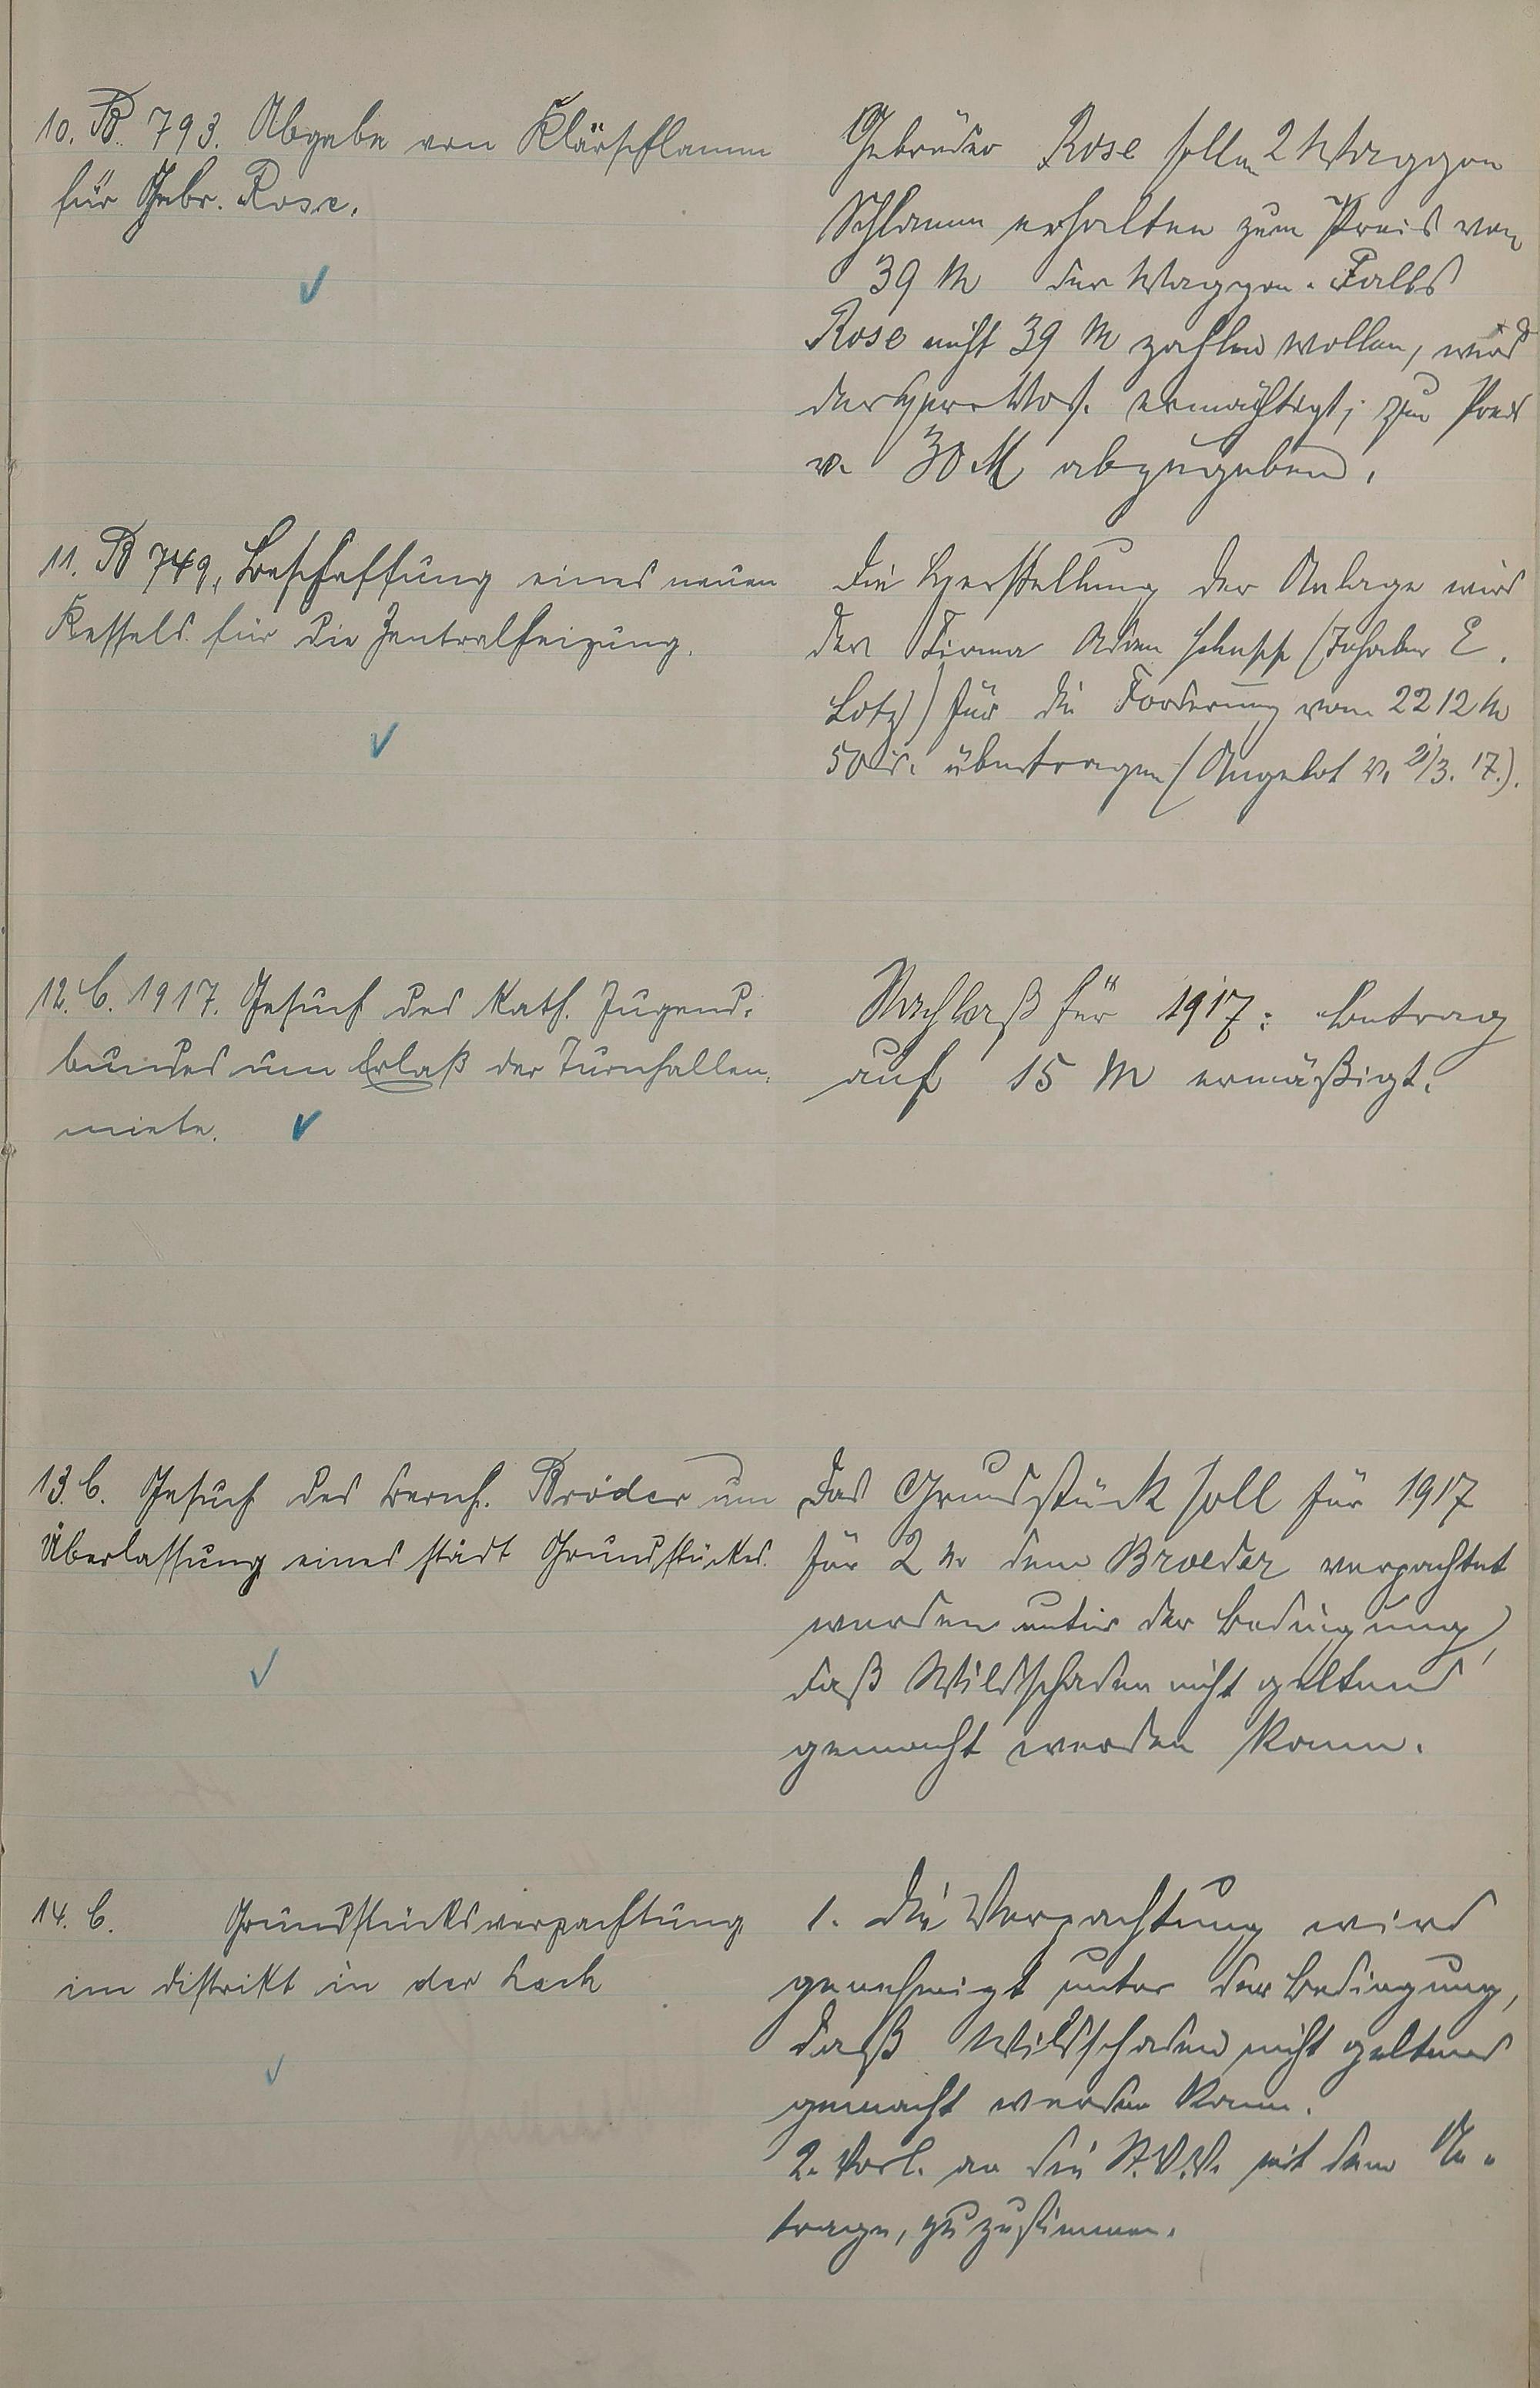 10. B. 793. Abgabe von Klärschlamm
für Gebr. Rose.
Gebrüder Rose sollen 2 Waggon
Schlamm erhalten zum Preis von
39 M der Waggon. Falls
Rose nicht 39 M zahlen wollen, wird
der ermächtigt, zum Preis
v. 30 M abzugeben.
11. B 749. Beschaffung eines neuen
Kessels für die Zentralheizung.
Die Herstellung der Anlage wird
der Firma Adam (Inhaber E.
Lotz) für die Forderung von 2212 M
50 übertragen (Angebot v. 2/3. 17.).
12. C. 1917. Gesuch des Kath. Jugend-
bundes um Erlaß der Turnhallen-
miete.
Nachlaß für 1917: Betrag
auf 15 M ermäßigt.
13. C. Gesuch des Bernh. Bröder um
Überlassung eines städt Grundstückes.
Das Grundstück soll für 1917
für 2 M dem Broeder verpachtet
werden unter der Bedingung,
daß Wildschaden nicht geltend
gemacht werden kann.
14. C. Grundstücksverpachtung
im Distrikt in der Lach
1. Die Verpachtung wird
genehmigt unter der Bedingung,
daß Wildschaden nicht geltend
gemacht werden kann.
2. Vorl. an die St.V.V. mit dem An-
trage, zuzustimmen.